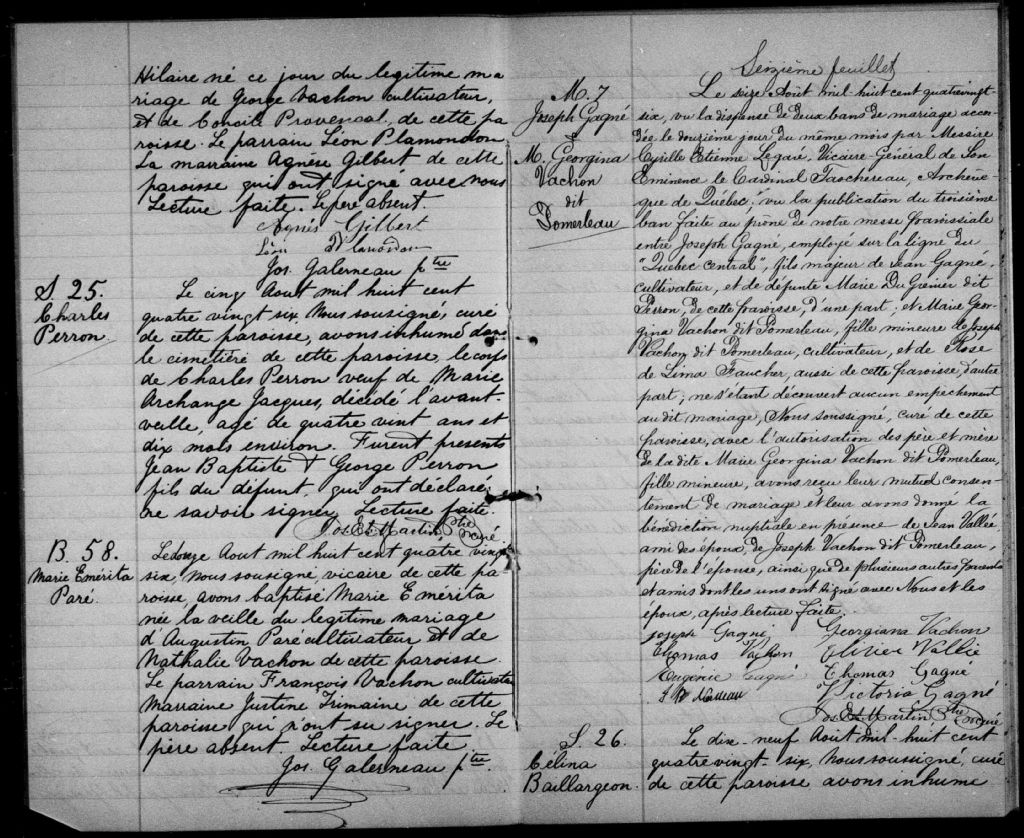 Hilaire né ce jour du legitime ma
riage de George Vachon cultivateur,
et de Concile Provencal, de cette pa
roisse. Le parrain Léon Plamondon
La marraine Agnèse Gilbert de cette
paroisse qui ont signé avec nous
Lecture faite. Le père absent.
Agnès Gilbert
Léon Plamondon
Jos. Galerneau ptre
S. 25.
Charles
Perron.
Le cinq Aout mil huit cent
quatre vingt six Nous sousigné, curé
de cette paroisse, avons inhumé dans
le cimetière de cette paroisse le corps
de Charles Perron veuf de Marie
Archange Jacques, décédé l'avant
veille, agé de quatre vint ans et
dix mois environ. Furent presents
Jean Baptiste & George Perron
fils du défunt, qui ont déclaré
ne savoir signer. Lecture faite.
Jos. Et. Martin, Ptre curé
B. 58.
Marie Emérita
Paré.
Le douze Aout mil huit cent quatre vingt
six, Nous sousigné, vicaire de cette pa
roisse, avons baptisé Marie Emerita
née la veille du legitime mariage
d'Augustin Paré cultivateur et de
Nathalie Vachon de cette paroisse.
Le parrain François Vachon cultivateur
Marraine Justine Trimaine de cette
paroisse qui n'ont su signer. Le
père absent. Lecture faite.
Jos. Galerneau ptre.
Seizième feuillet
M. 7
Joseph Gagné
&
M. Georgina
Vachon
dit
Pomerleau
Le seize Août mil huit cent quatrevingt-
six, vu la dispense de deux bans de mariage accor-
dée le douzième jour du même mois par Messire
Cyrille Etienne Legaré, Vicaire Général de Son
Eminence le Cardinal Taschereau, Archevê-
que de Québec; vu la publication du troisième
ban faite au prône de notre messe paroissiale
entre Joseph Gagné, employé sur la ligne du
"Quebec Central", fils majeur de Jean Gagné,
cultivateur, et de défunte Marie Du Genier dit
Perron, de cette paroisse, d'une part; et Marie Geor-
gina Vachon dit Pomerleau, fille mineure de Joseph
Vachon dit Pomerleau, cultivateur, et de Rose
de Lima Faucher, aussi de cette paroisse, d'autre
part; ne s'étant découvert aucun empêchement
au dit mariage, Nous soussigné, curé de cette
paroisse, avec l'autorisation des père et mère
de la dite Marie Georgina Vachon dit Pomerleau,
fille mineure, avons reçu leur mutuel consen-
tement de mariage et leur avons donné la
bénédiction nuptiale en présence de Jean Vallée
ami des époux, de Joseph Vachon dit Pomerleau,
père de l'épouse, ainsi que de plusieurs autres parents
et amis dont les uns ont signé avec Nous et les
époux, après lecture faite.
Joseph Gagné Georgiana Vachon
Thomas Vachon Olivier Vallie
Eugenie Gagné Thomas Gagné
Victoria Gagné
Jos. Et. Martin, Ptre curé
S. 26.
Célina
Baillargeon.
Le dix-neuf Août mil-huit cent
quatrevingt-six, Nous soussigné, curé
de cette paroisse avons inhumé